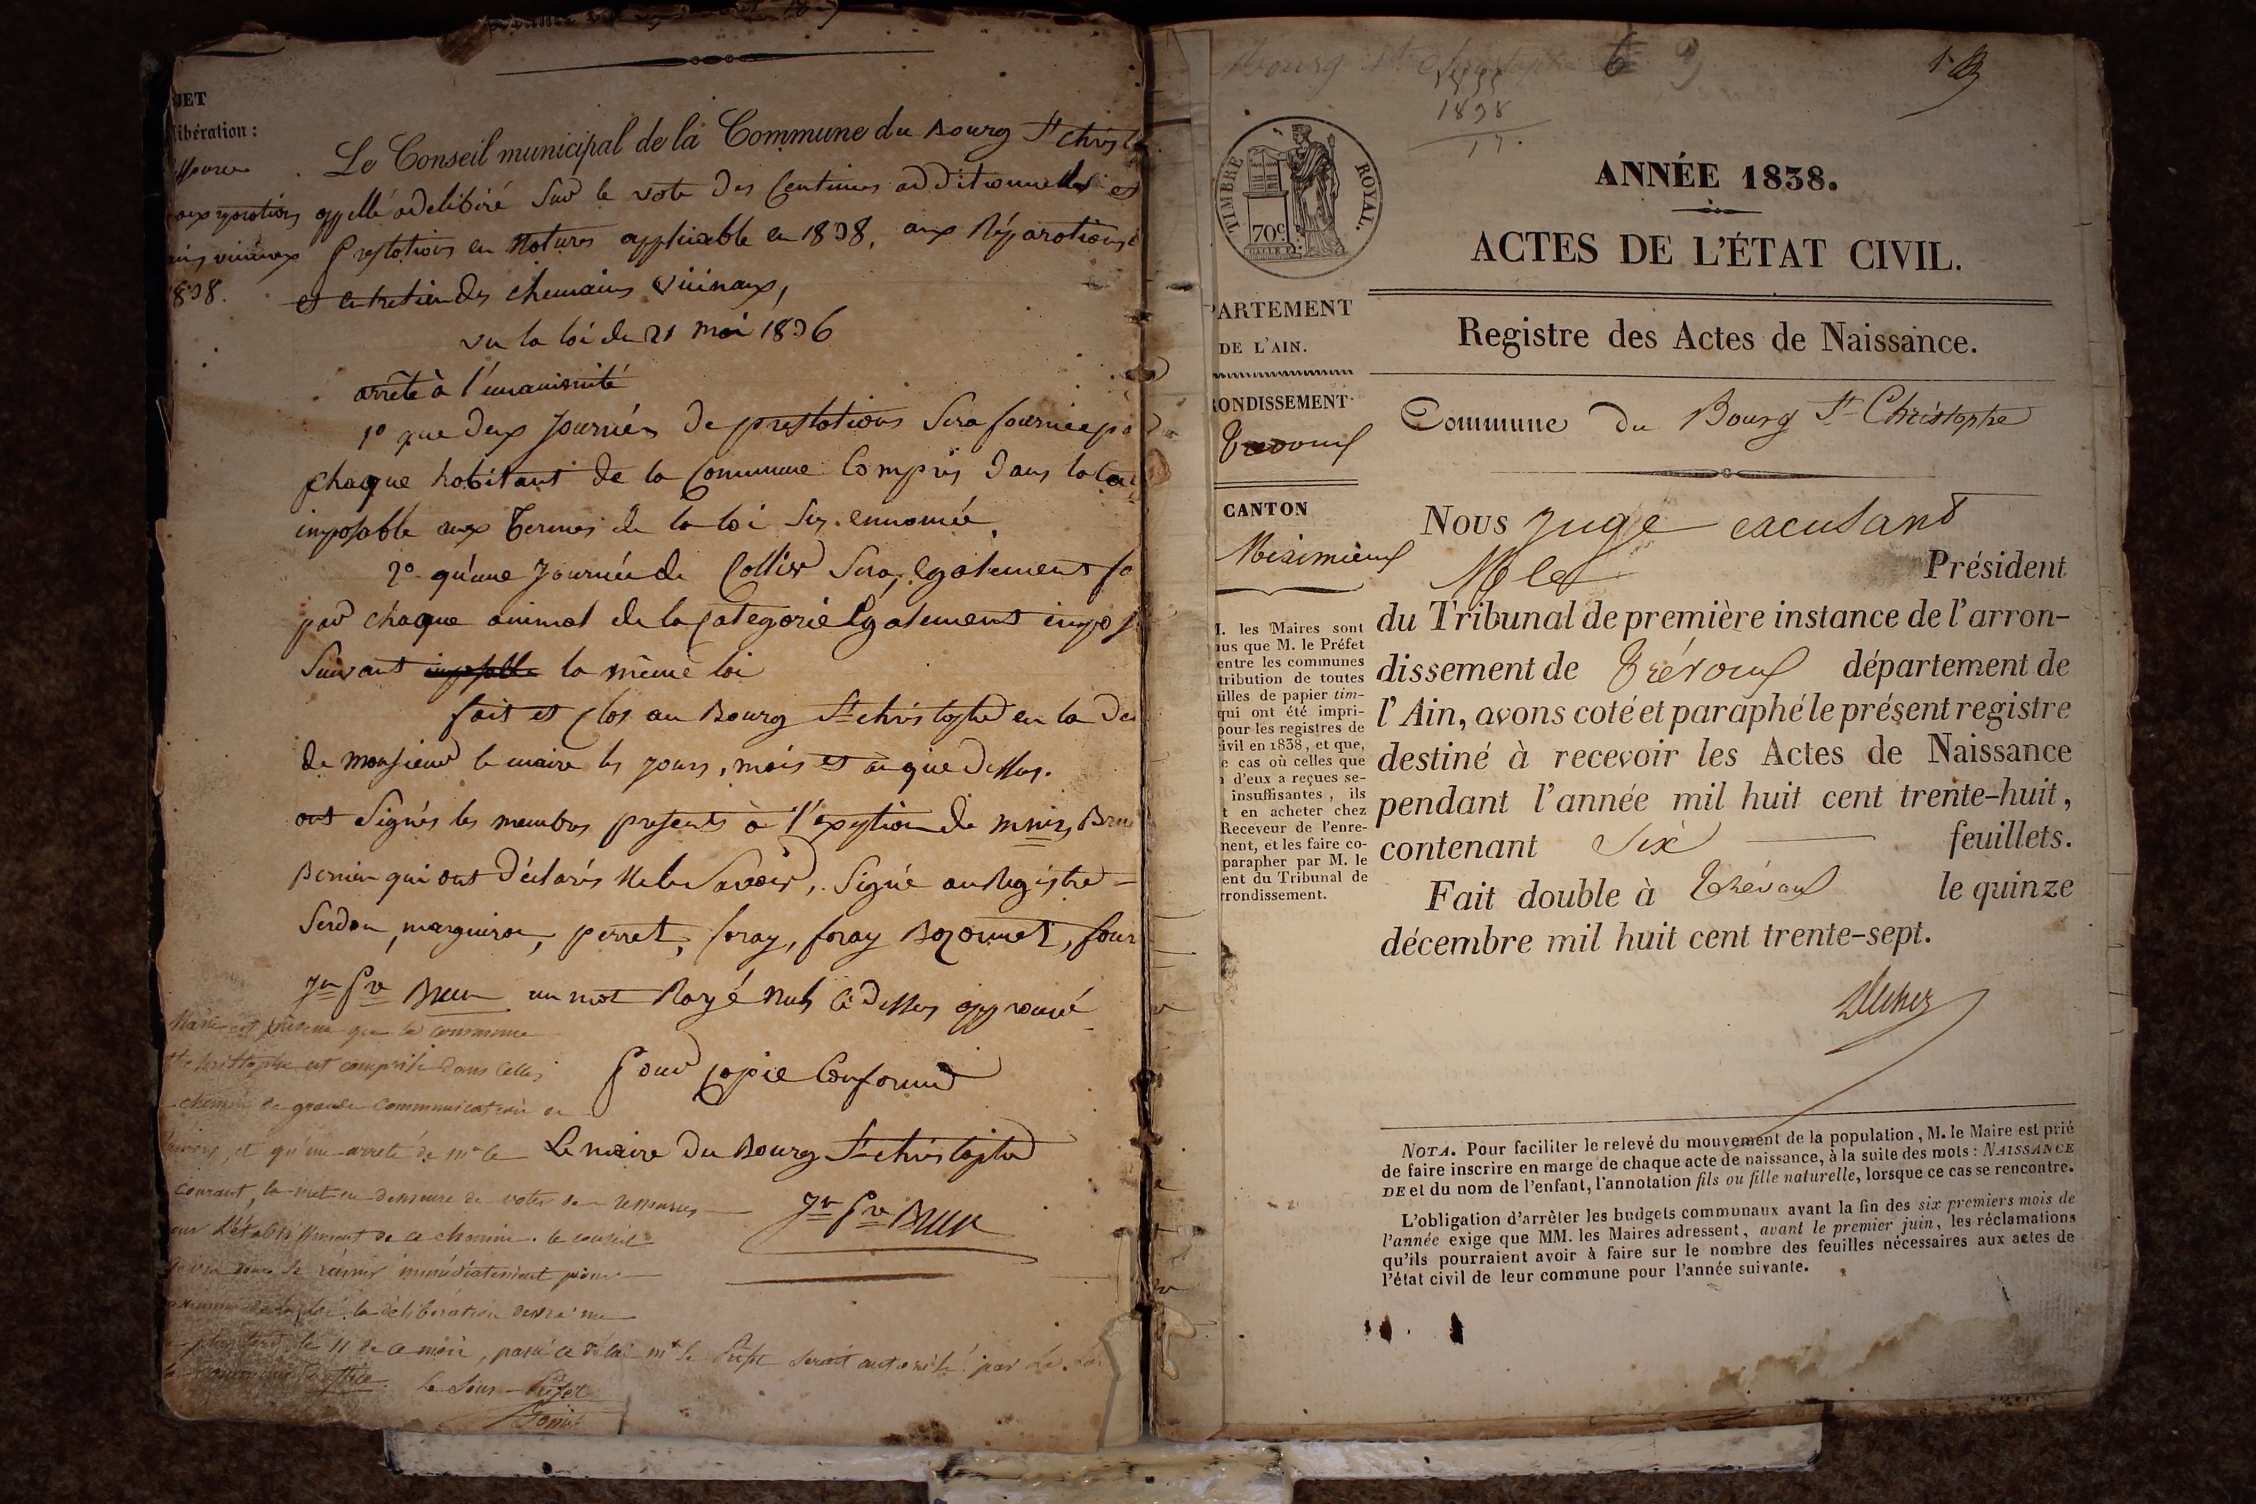 JET
libération :
Le Conseil municipal de la Commune du Bourg St christ
appellé a delibéré Sur le vote des Centimes additionnelles et
prestations en Natures applicable en 1838, aux Réparations
et entretien des chemains vicinaux,
1838.
vu la loi du 21 mai 1836
arrête à l'unanimité
1º que deux Journées de prestations Sera fournie pa
chaque habitant de la Commune Compris dans la
imposable aux termes de la loi
2º qu'une Journée de Collier Sera Egalement fo
par chaque animal de la Categorie Egalement impos
Suivant la même loi
fait et Clos au Bourg St christophe en la de
de monsieur le maire les jours, mois et an que dessus.
ont Signés les membres presents à l'exeption de
qui ont déclarés ne le Savoir, Signé au Registre =
Serdon, marguiron, perret, foray, foray Bozonnet, four
un mot Rayé nul ci dessus approuvé
que la commune
est comprise dans celles
chemin de grande communication
et qu'un arreté de mr le
courant, la met en demeure de voter des ressources
pour l'établissement de ce chemin. le conseil
se réunir immédiatement pour
la délibération
le 11 de ce mois, passé ce délai mr le Préfet serait autorisé par la
le Sous-Préfet
Pour Copie Conforme
Le maire Du Bourg St christophe
1838
ANNÉE 1838.
TIMBRE ROYAL.
70c
ACTES DE L'ÉTAT CIVIL.
PARTEMENT
DE L'AIN.
Registre des Actes de Naissance.
RONDISSEMENT
Trévoux
Commune du Bourg St Christophe
CANTON
Meximieux
Nous Juge
Mr le Président
du Tribunal de première instance de l'arron-
dissement de Trévoux département de
l'Ain, avons coté et paraphé le présent registre
destiné à recevoir les Actes de Naissance
pendant l'année mil huit cent trente-huit,
contenant Six feuillets.
Fait double à Trévoux le quinze
décembre mil huit cent trente-sept.
M. les Maires sont
nus que M. le Préfet
entre les communes
tribution de toutes
uilles de papier tim-
qui ont été impri-
pour les registres de
civil en 1838, et que,
e cas où celles que
d'eux a reçues se-
insuffisantes, ils
t en acheter chez
Receveur de l'enre-
ment, et les faire co-
parapher par M. le
ent du Tribunal de
rrondissement.
NOTA. Pour faciliter le relevé du mouvement de la population, M. le Maire est prié
de faire inscrire en marge de chaque acte de naissance, à la suite des mots : NAISSANCE
DE et du nom de l'enfant, l'annotation fils ou fille naturelle, lorsque ce cas se rencontre.
L'obligation d'arrêter les budgets communaux avant la fin des six premiers mois de
l'année exige que MM. les Maires adressent, avant le premier juin, les réclamations
qu'ils pourraient avoir à faire sur le nombre des feuilles nécessaires aux actes de
l'état civil de leur commune pour l'année suivante.